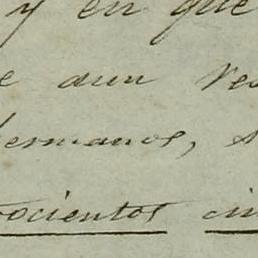 y en que
e aun res
hermanos, s
ocientos cin